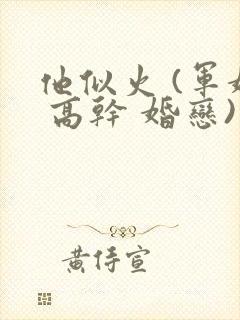 他似火(軍
高幹 婚戀)
黃侍宣